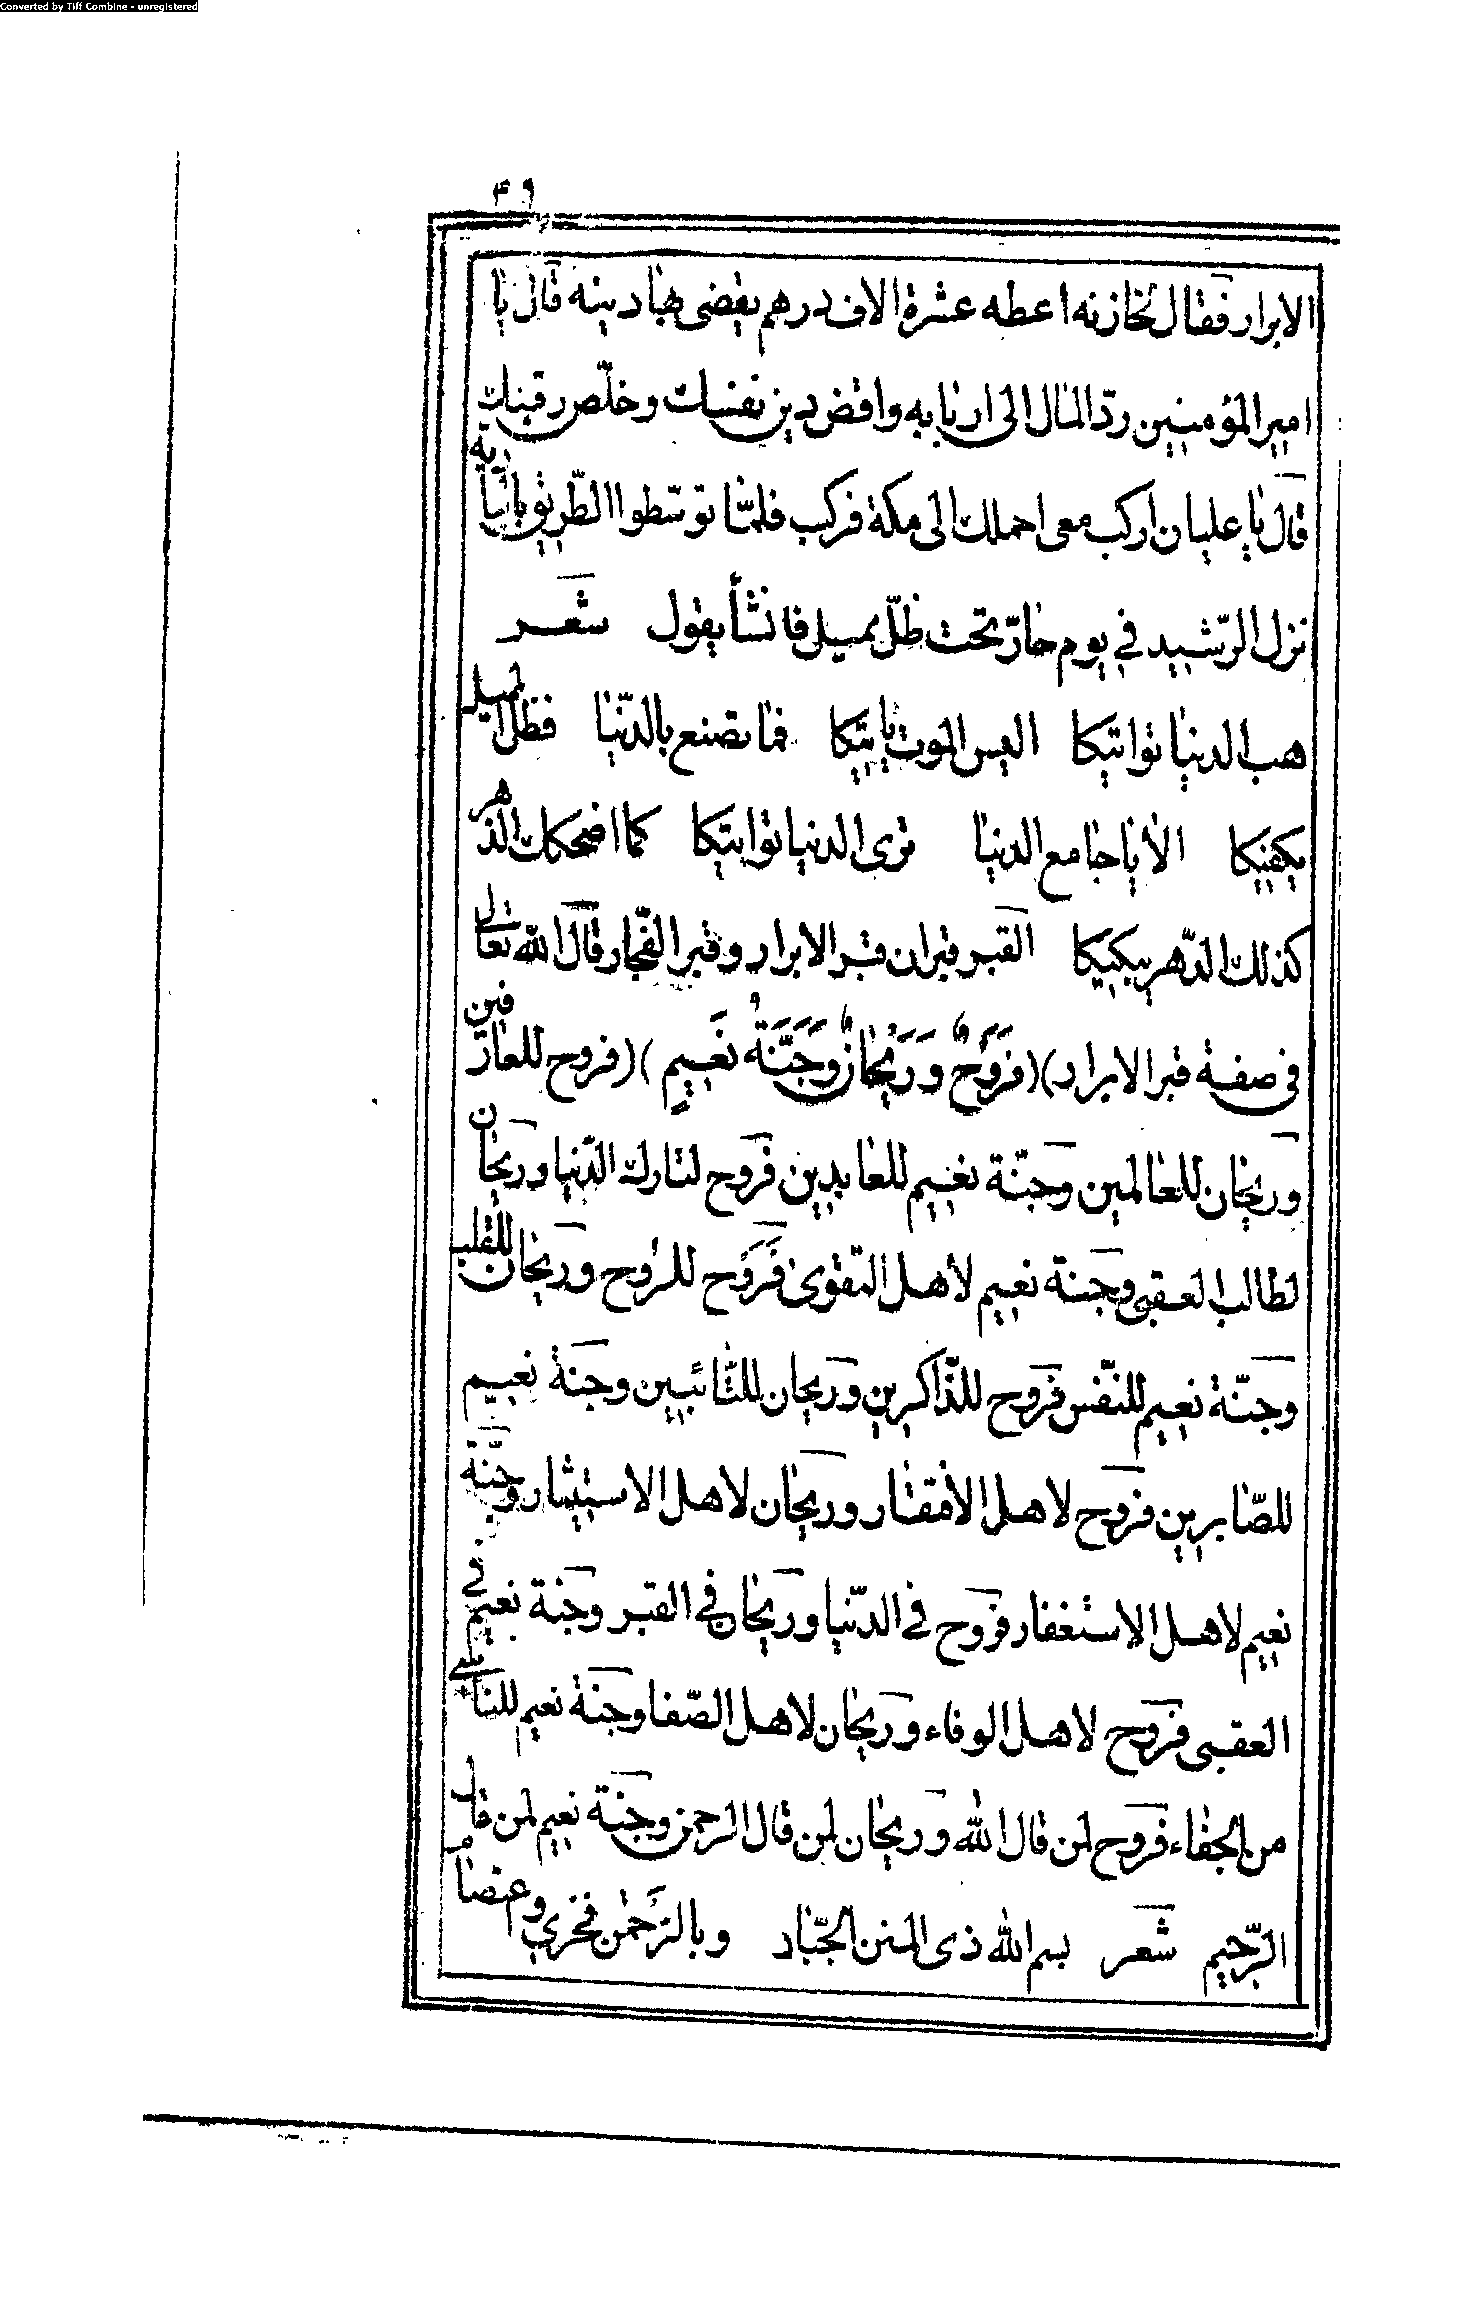 Converted by Tiff Combine - unregistered
٤٩
الابرار فقال لخازنه اعطه عشرة الاف درهم يقضى بها دينه قال يا
امير المؤمنين ردّ المال الى اربابه واقض دين نفسك وخلّص رقبتك
قال يا عليان اركب معى احملك الى مكة فركب فلمّا توسّطوا الطّريق بالبادية
نزل الرّشيد في يوم حارّ تحت ظلّ ميل فانشأ يقول شعر
هب الدنيا تواتيكا اليس الموت ياتيكا فما تصنع بالدّنيا فظلّ الميل
يكفيكا الا يا جامع الدنيا ترى الدنيا تواتيكا كما اضحكك الدهر
كذلك الدّهر يبكيكا القبر قبران قبر الابرار وقبر الفجّار قال الله تعالى
فى صفة قبر الابرار (فَرَوْحٌ وَرَيْحَانٌ وَجَنَّةُ نَعِيمٍ) فروح للعارفين
وريحان للعالمين وجنّة نعيم للعابدين فروح لتارك الدّنيا وريحان
لطالب العقبى وجنة نعيم لاهل التقوى فروح للروح وريحان للقلب
وجنّة نعيم للنفس فروح للذّاكرين وريحان للتّائبين وجنة نعيم
للصّابرين فروح لاهل الافتقار وريحان لاهل الاستبشار وجنّة
نعيم لاهل الاستغفار فروح في الدّنيا وريحان في القبر وجنة نعيم في
العقبى فروح لاهل الوفاء وريحان لاهل الصّفا وجنة نعيم
من الجفاء فروح لمن قال الله وريحان لمن قال الرحمن وجنة نعيم لمن قال
الرّحيم شعر بسم الله ذى المنن الجبّار وبالرّحمن فخري